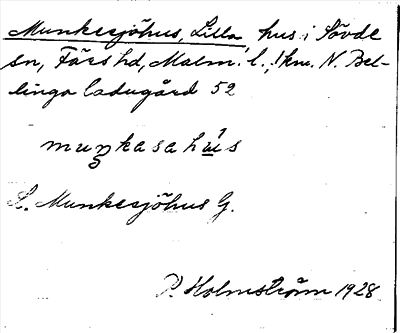 Munkesjöhus, Lilla, hus i Sövde
sn, Färs hd, Malm. l., 1 km. N. Bel-
linga ladugård 52
muŋkasahu̇́s
L. Munkesjöhus G.
P. Holmström 1928